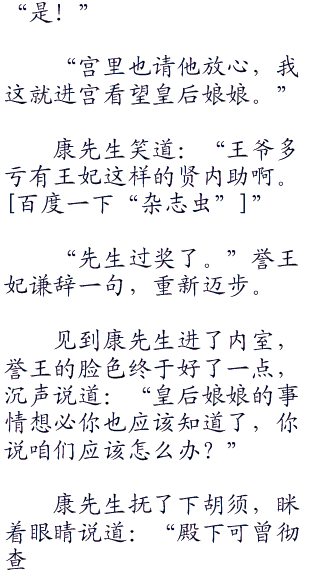 “是！”
“宫里也请他放心，我
这就进宫看望皇后娘娘。”
康先生笑道：“王爷多
亏有王妃这样的贤内助啊。
[百度一下“杂志虫”]”
“先生过奖了。”誉王
妃谦辞一句，重新迈步。
见到康先生进了内室，
誉王的脸色终于好了一点，
沉声说道：“皇后娘娘的事
情想必你也应该知道了，你
说咱们应该怎么办？”
康先生抚了下胡须，眯
着眼睛说道：“殿下可曾彻
查